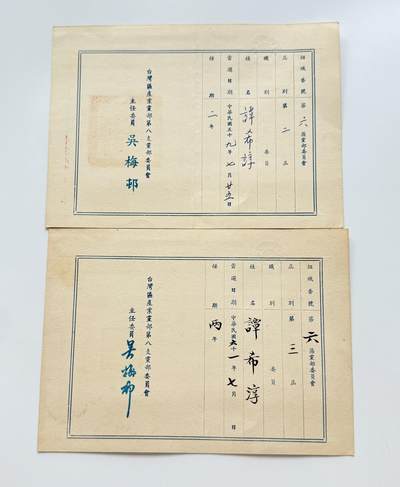 組織番號 第六區黨部委員會
屆別 第二屆
職別 委員
姓名 譚希淳
當選日期 中華民國五十九年七月廿五日
任期 二年
台灣區產業黨部第八支黨部委員會
主任委員 吳梅邨
組織番號 第六區黨部委員會
屆別 第三屆
職別 委員
姓名 譚希淳
當選日期 中華民國六十一年七月 日
任期 兩年
台灣區產業黨部第八支黨部委員會
主任委員 吳梅邨